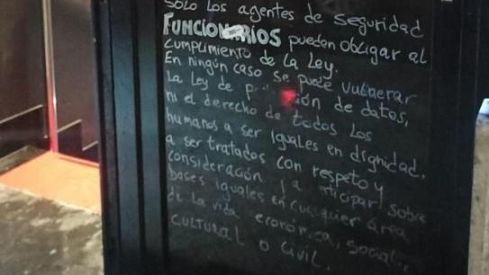 Solo los agentes de seguridad
FUNCIONARIOS pueden obligar al
cumplimiento de la Ley.
En ningún caso se puede vulnerar
la Ley de de datos,
ni el derecho de todos los
humanos a ser iguales en dignidad,
a ser tratados con respeto y
consideración ticipar sobre
bases iguales en cualquier área
de la vida económica, social,
CULTURAL o civil.